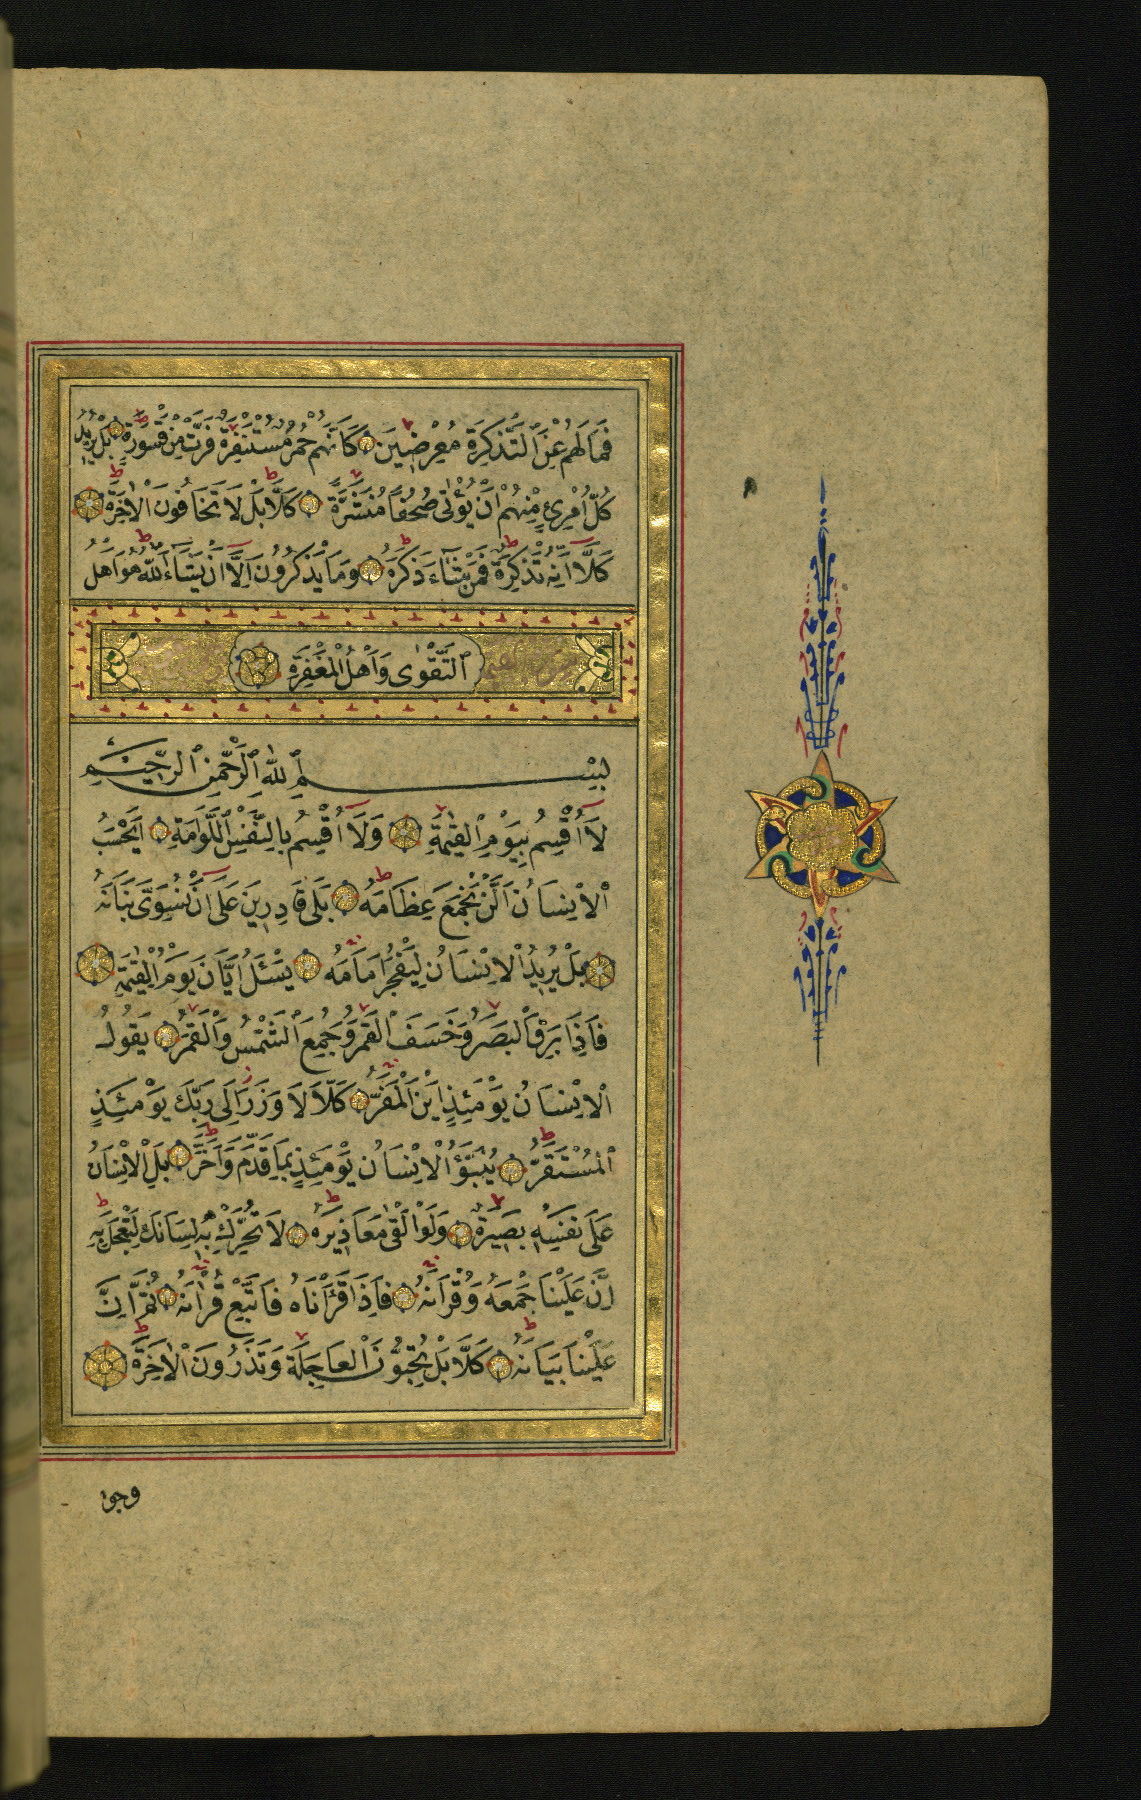 فَمَا لَهُمْ عَنِ ٱلتَّذْكِرَةِ مُعْرِضِينَ كَأَنَّهُمْ حُمُرٌ مُسْتَنْفِرَةٌ فَرَّتْ مِنْ قَسْوَرَةٍ بَلْ يُرِيدُ
كُلُّ امْرِئٍ مِنْهُمْ أَنْ يُؤْتَى صُحُفًا مُنَشَّرَةً كَلَّا بَلْ لَا تَخَافُونَ الْآخِرَةَ
كَلَّا اِنَّهُ تَذْكِرَةٌ فَمَنْ شَاءَ ذَكَرَهُ وَمَا يَذْكُرُونَ اِلَّا اَنْ يَشَاءَ ٱللّٰهُ هُوَ اَهْلُ
ٱلتَّقْوٰى وَاَهْلُ الْمَغْفِرَةِ
بِسْمِ ٱللّٰهِ ٱلرَّحْمٰنِ ٱلرَّحِيمِ
لَا أُقْسِمُ بِيَوْمِ ٱلْقِيٰمَةِ وَلَا أُقْسِمُ بِالنَّفْسِ ٱللَّوَّامَةِ اَيَحْسَبُ
الْاِنْسَانُ اَلَّنْ نَجْمَعَ عِظَامَهُ بَلَى قَادِرِينَ عَلَى اَنْ نُسَوِّيَ بَنَانَهُ
بَلْ يُرِيدُ الْاِنْسَانُ لِيَفْجُرَ اَمَامَهُ يَسْـَٔلُ اَيَّانَ يَوْمُ الْقِيٰمَةِ
فَاِذَا بَرِقَ الْبَصَرُ وَخَسَفَ الْقَمَرُ وَجُمِعَ ٱلشَّمْسُ وَالْقَمَرُ يَقُولُ
الْاِنْسَانُ يَوْمَئِذٍ اَيْنَ الْمَفَرُّ كَلَّا لَا وَزَرَ اِلَى رَبِّكَ يَوْمَئِذٍ
الْمُسْتَقَرُّ يُنَبَّؤُ الْاِنْسَانُ يَوْمَئِذٍ بِمَا قَدَّمَ وَاَخَّرَ بَلِ الْاِنْسَانُ
عَلَى نَفْسِهِ بَصِيرَةٌ وَلَوْ اَلْقٰى مَعَاذِيرَهُ لَا تُحَرِّكْ بِهِ لِسَانَكَ لِتَعْجَلَ بِهِ
اِنَّ عَلَيْنَا جَمْعَهُ وَقُرْاٰنَهُ فَاِذَا قَرَأْنَاهُ فَاتَّبِعْ قُرْاٰنَهُ ثُمَّ اِنَّ
عَلَيْنَا بَيَانَهُ كَلَّا بَلْ تُحِبُّونَ الْعَاجِلَةَ وَتَذَرُونَ الْاٰخِرَةَ
وجوه